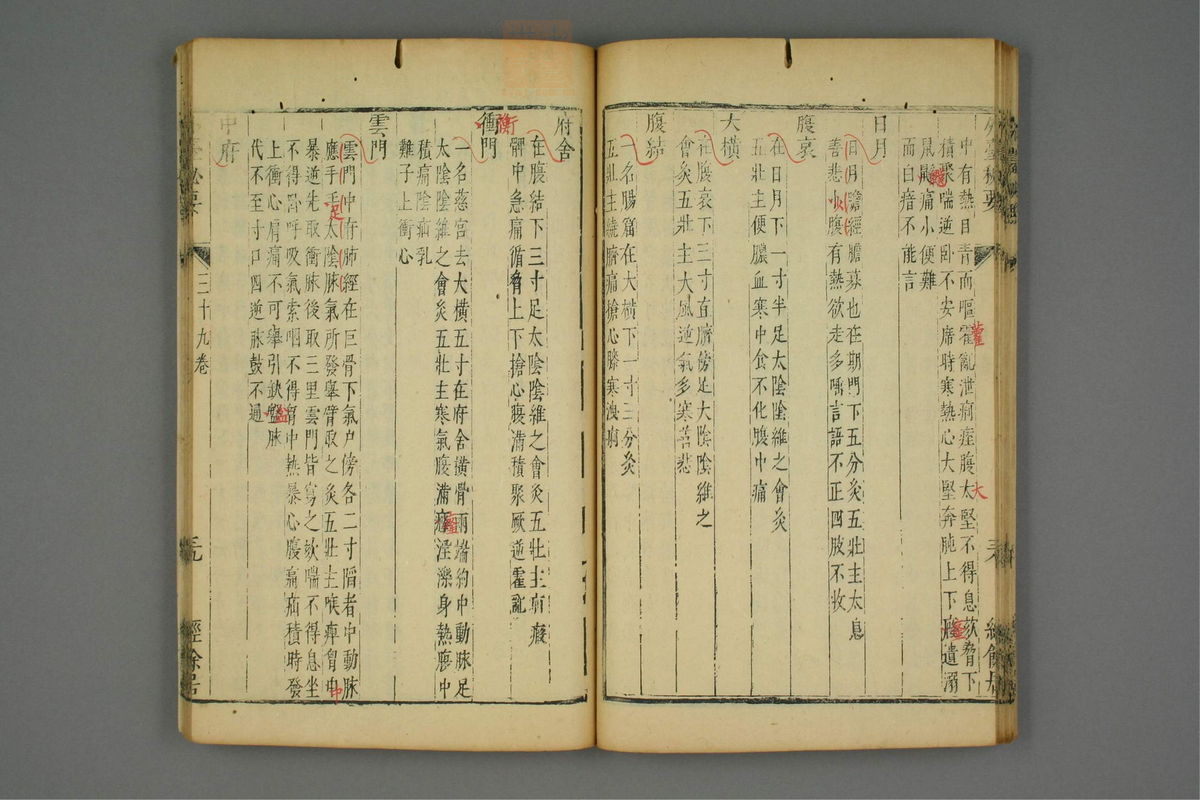 外臺秘要
中有熱目青而嘔霍亂泄痢痓腹太堅不得息欬脅下
積聚喘逆卧不安席時寒熱心大堅奔肫上下癃遺溺
鼠鼷痛小便難
而白瘖不能言
日月
日月膽經膽募也在期門下五分灸五壯主太息
善悲小腹有熱欲走多唾言語不正四肢不收
腹哀
在日月下一寸半足太陰陰維之會灸
五壯主便膿血寒中食不化腹中痛
大橫
在腹哀下三寸直臍傍足大陰陰維之
會灸五壯主大風逆氣多寒善悲
腹結
一名腸窟在大橫下一寸三分灸
五壯主繞臍痛搶心膝寒洩痢
府舍
在腹結下三寸足太陰陰維之會灸五壯主疝癥
髀中急痛循脅上下搶心腹滿積聚厥逆霍亂
衝門
一名慈宮去大橫五寸在府舍橫骨兩端約中動脉足
太陰陰維之會灸五壯主寒氣腹滿癃淫濼身熱腹中
積痛陰疝乳
難子上衝心
雲門
雲門中府肺經在巨骨下氣户傍各二寸䧟者中動脉
應手手太陰脉氣所發舉臂取之灸五壯主喉痺胷中
暴逆先取衝脉後取三里雲門皆寫之欬喘不得息坐
不得卧呼吸氣索咽不得胷中熱暴心腹痛疝積時發
上衝心肩痛不可舉引缺盤脉
代不至寸口四逆脉鼓不通
中府
秘要
三十九卷
三九
經餘居